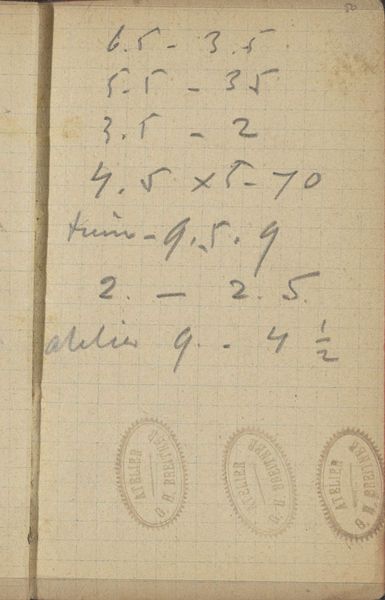 50
6.5 - 3.5
5.5 - 35
3.5 - 2
4.5 x 5 - 70
tuin - 9.5.9
2. - 2.5
atelier 9. - 4 1/2
ATELIER
G. H. BREITNER
ATELIER
G. H. BREITNER
ATELIER
G. H. BREITNER